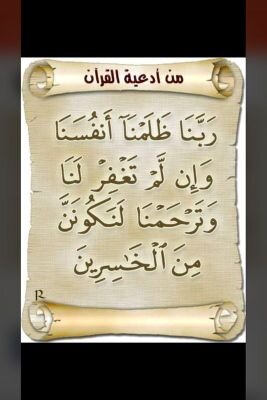 من أدعية القرآن
رَبَّنَا ظَلَمْنَآ أَنفُسَنَا
وَإِن لَّمْ تَغْفِرْ لَنَا
وَتَرْحَمْنَا لَنَكُونَنَّ
مِنَ ٱلْخَٰسِرِينَ
R